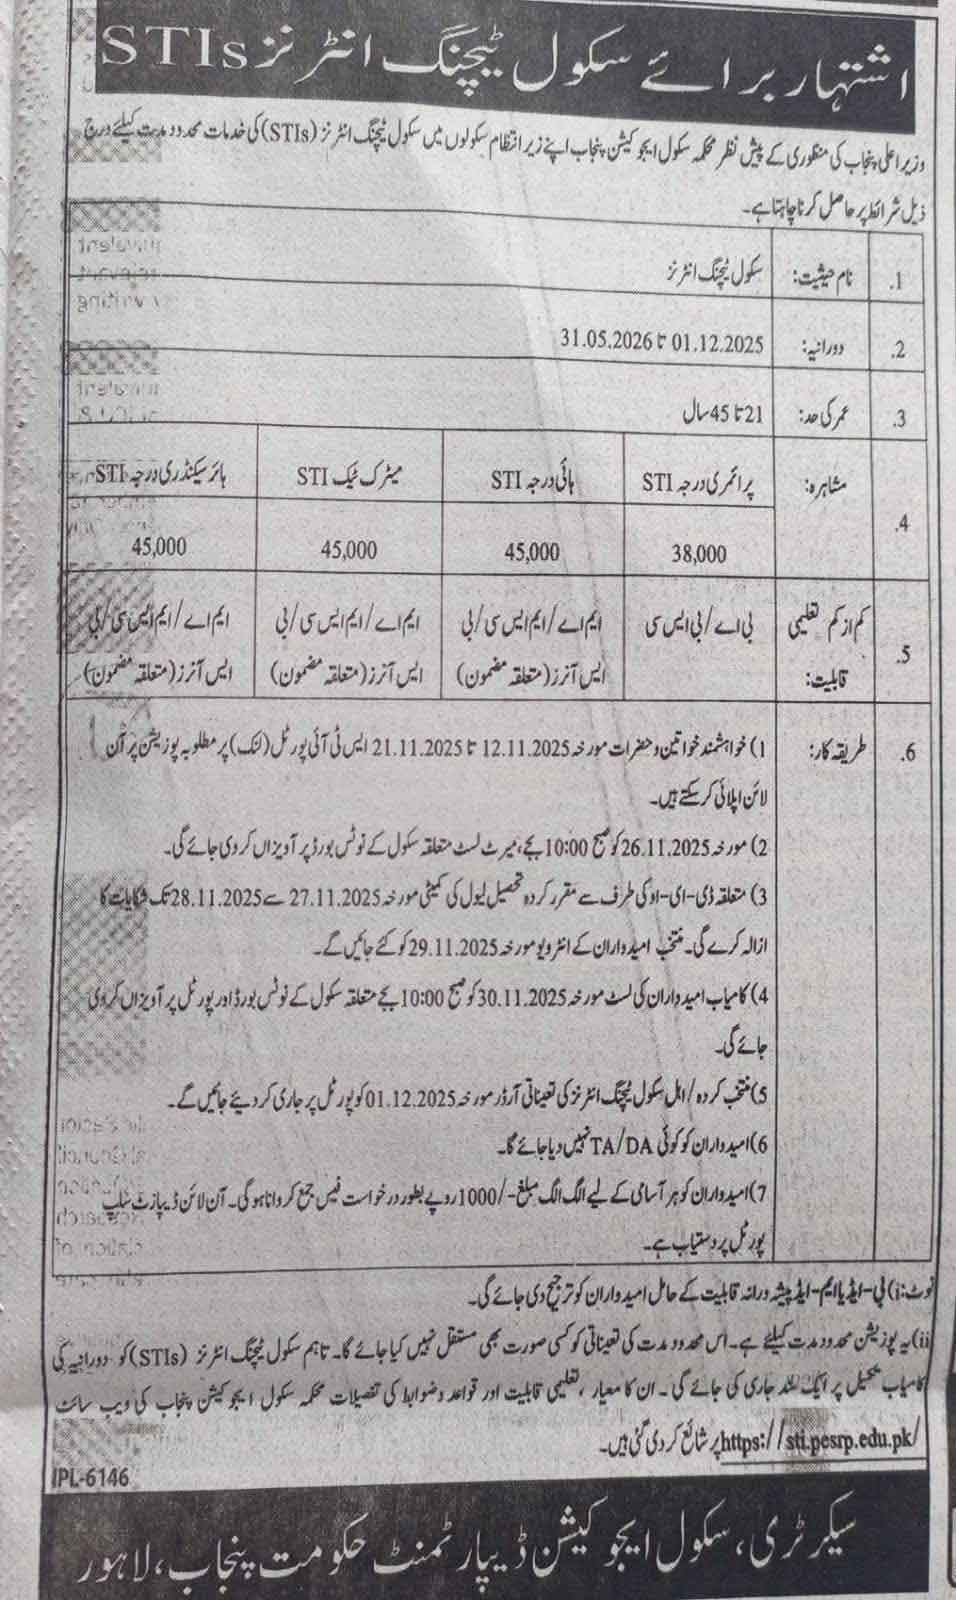 اشتہار برائے سکول ٹیچنگ انٹرنز STIs
وزیر اعلیٰ پنجاب کی منظوری کے پیش نظر محکمہ سکول ایجوکیشن پنجاب اپنے زیر انتظام سکولوں میں سکول ٹیچنگ انٹرنز (STIs) کی خدمات محدود مدت کیلئے درج
ذیل شرائط پر حاصل کرنا چاہتا ہے۔
1. نام حیثیت: سکول ٹیچنگ انٹرنز
2. دورانیہ: 01.12.2025 تا 31.05.2026
3. عمر کی حد: 21 تا 45 سال
4. مشاہرہ: پرائمری درجہ STI ہائی درجہ STI میٹرک ٹیک STI ہائر سیکنڈری درجہ STI
38,000 45,000 45,000 45,000
5. کم از کم تعلیمی بی اے/بی ایس سی ایم اے/ایم ایس سی/بی ایم اے/ایم ایس سی/بی ایم اے/ایم ایس سی/بی
قابلیت: ایس آنرز (متعلقہ مضمون) ایس آنرز (متعلقہ مضمون) ایس آنرز (متعلقہ مضمون)
6. طریقہ کار: 1) خواہشمند خواتین و حضرات مورخہ 12.11.2025 تا 21.11.2025 ایس ٹی آئی پورٹل (لنک) پر مطلوبہ پوزیشن پر آن
لائن اپلائی کر سکتے ہیں۔
2) مورخہ 26.11.2025 کو صبح 10:00 بجے، میرٹ لسٹ متعلقہ سکول کے نوٹس بورڈ پر آویزاں کر دی جائے گی۔
3) متعلقہ ڈی-ای-او کی طرف سے مقرر کردہ تحصیل لیول کی کمیٹی مورخہ 27.11.2025 سے 28.11.2025 تک شکایات کا
ازالہ کرے گی۔ منتخب امیدواران کے انٹرویو مورخہ 29.11.2025 کو کئے جائیں گے۔
4) کامیاب امیدواران کی لسٹ مورخہ 30.11.2025 کو صبح 10:00 بجے متعلقہ سکول کے نوٹس بورڈ اور پورٹل پر آویزاں کر دی
جائے گی۔
5) منتخب کردہ/اہل سکول ٹیچنگ انٹرنز کی تعیناتی آرڈر مورخہ 01.12.2025 کو پورٹل پر جاری کر دیئے جائیں گے۔
6) امیدواران کو کوئی TA/DA نہیں دیا جائے گا۔
7) امیدواران کو ہر آسامی کے لیے الگ الگ مبلغ -/1000 روپے بطور درخواست فیس جمع کروانا ہوگی۔ آن لائن ڈیپازٹ سلپ
پورٹل پر دستیاب ہے۔
نوٹ: i) بی-ایڈ یا ایم-ایڈ پیشہ ورانہ قابلیت کے حامل امیدواران کو ترجیح دی جائے گی۔
ii) یہ پوزیشن محدود مدت کیلئے ہے۔ اس محدود مدت کی تعیناتی کو کسی صورت بھی مستقل نہیں کیا جائے گا۔ تاہم سکول ٹیچنگ انٹرنز (STIs) کو دورانیہ کی
کامیاب تکمیل پر ایک سند جاری کی جائے گی۔ ان کا معیار، تعلیمی قابلیت اور قواعد و ضوابط کی تفصیلات محکمہ سکول ایجوکیشن پنجاب کی ویب سائٹ
https://sti.pesrp.edu.pk/ پر شائع کر دی گئی ہیں۔
IPL-6146
سیکرٹری، سکول ایجوکیشن ڈیپارٹمنٹ حکومت پنجاب، لاہور